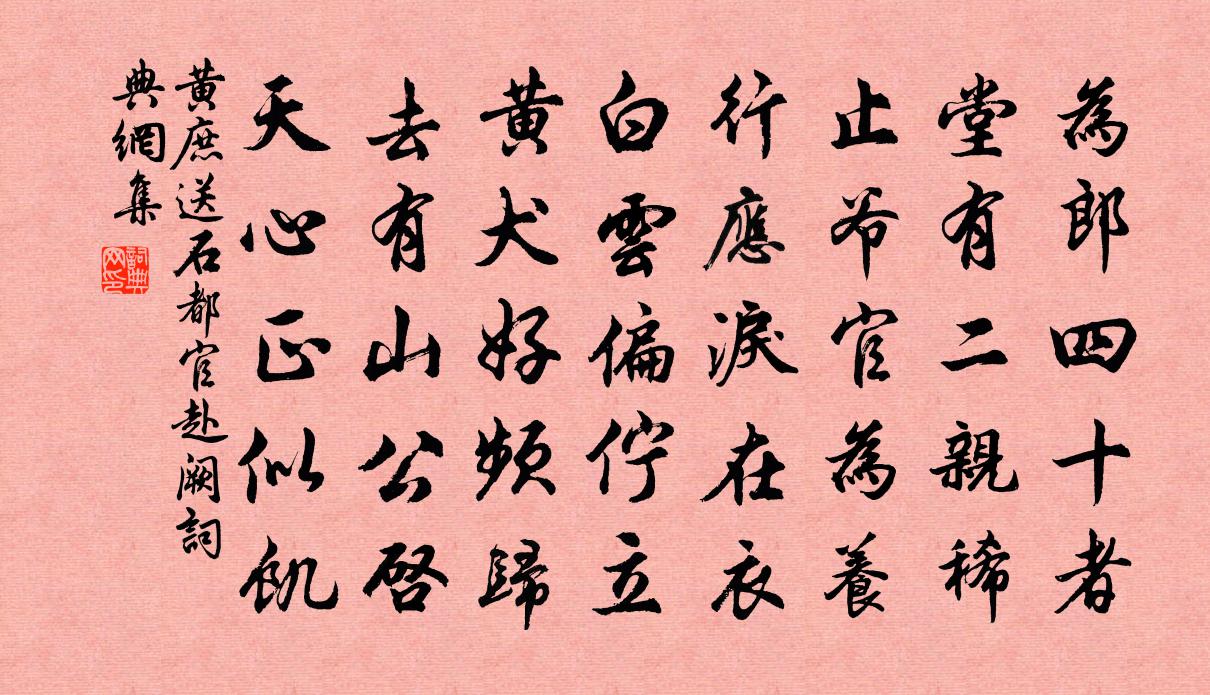 為郎四十者
堂有二親稀
止爷官為養
行應淚在衣
白雲偏佇立
黄犬好頻歸
去有山公啓
天心正似飢
黄庶送石都官赴阙詞
典網集
詞典网印